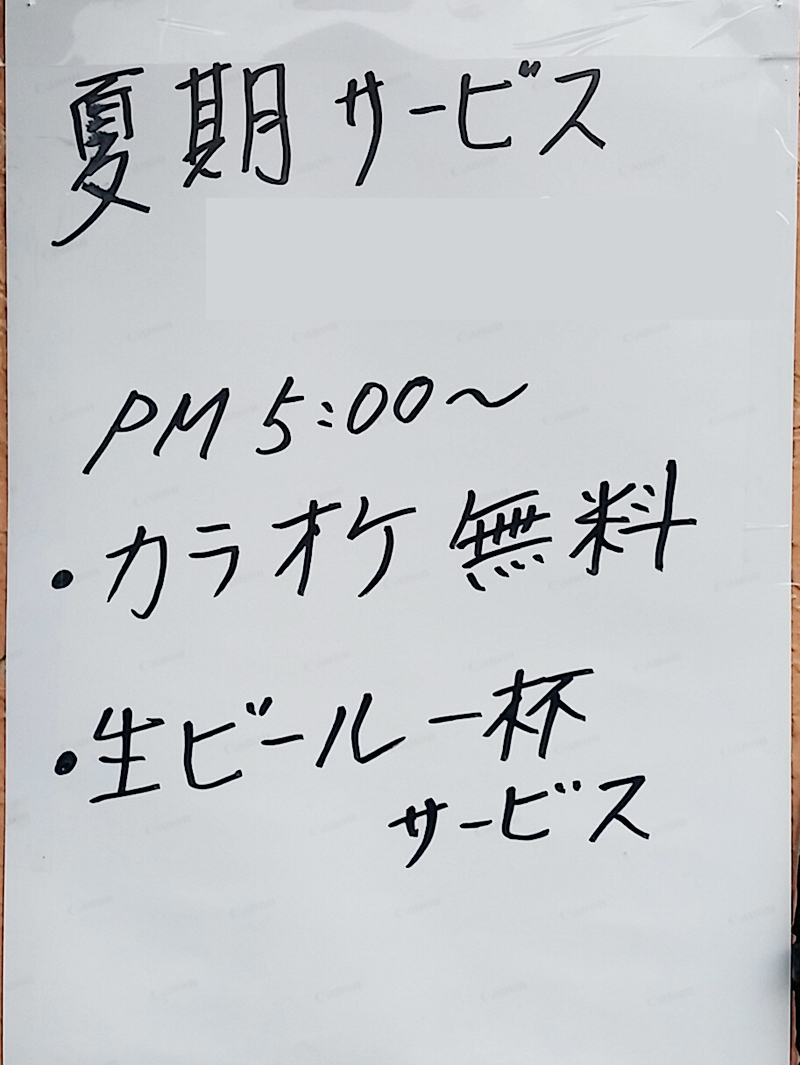 夏期サービス
PM 5:00～
・カラオケ無料
・生ビール一杯
サービス